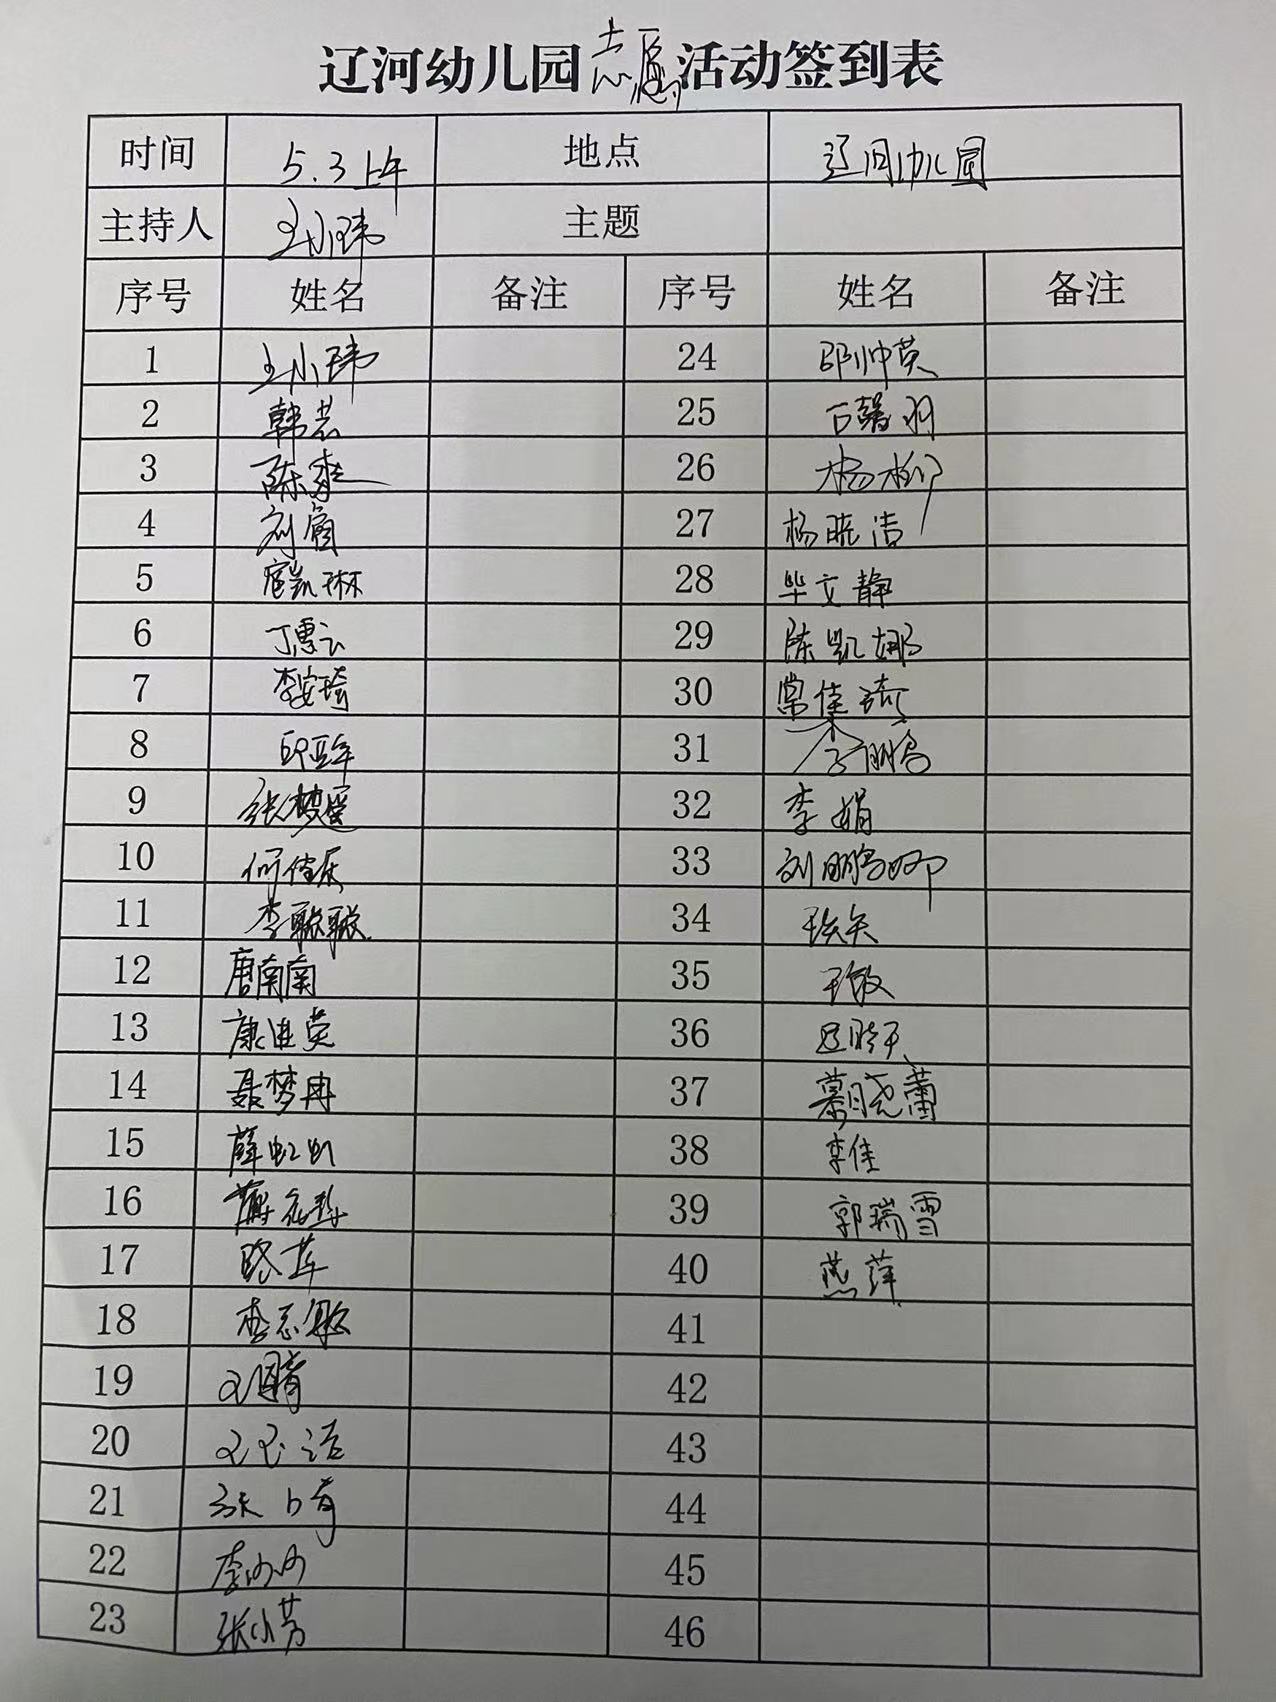 辽河幼儿园志愿活动签到表
时间 5.3上午 地点 辽河幼儿园
主持人 王小玮 主题
序号 姓名 备注 序号 姓名 备注
1 王小玮 24 邵帅英
2 韩芸 25 古馨羽
3 陈 26 杨柳
4 刘 27 杨晓洁
5 寇凯琳 28 毕文静
6 丁惠云 29 陈凯娜
7 李安琦 30 常佳琦
8 31 李鹏
9 张梦瑶 32 李娟
10 何倩 33 刘鹏
11 李聪聪 34
12 唐南南 35 王敏
13 康进英 36
14 聂梦冉 37 慕晓蕾
15 薛虹虹 38 李佳
16 薄 39 郭瑞雪
17 40 燕萍
18 李志敏 41
19 42
20 43
21 张 44
22 李 45
23 张小芳 46